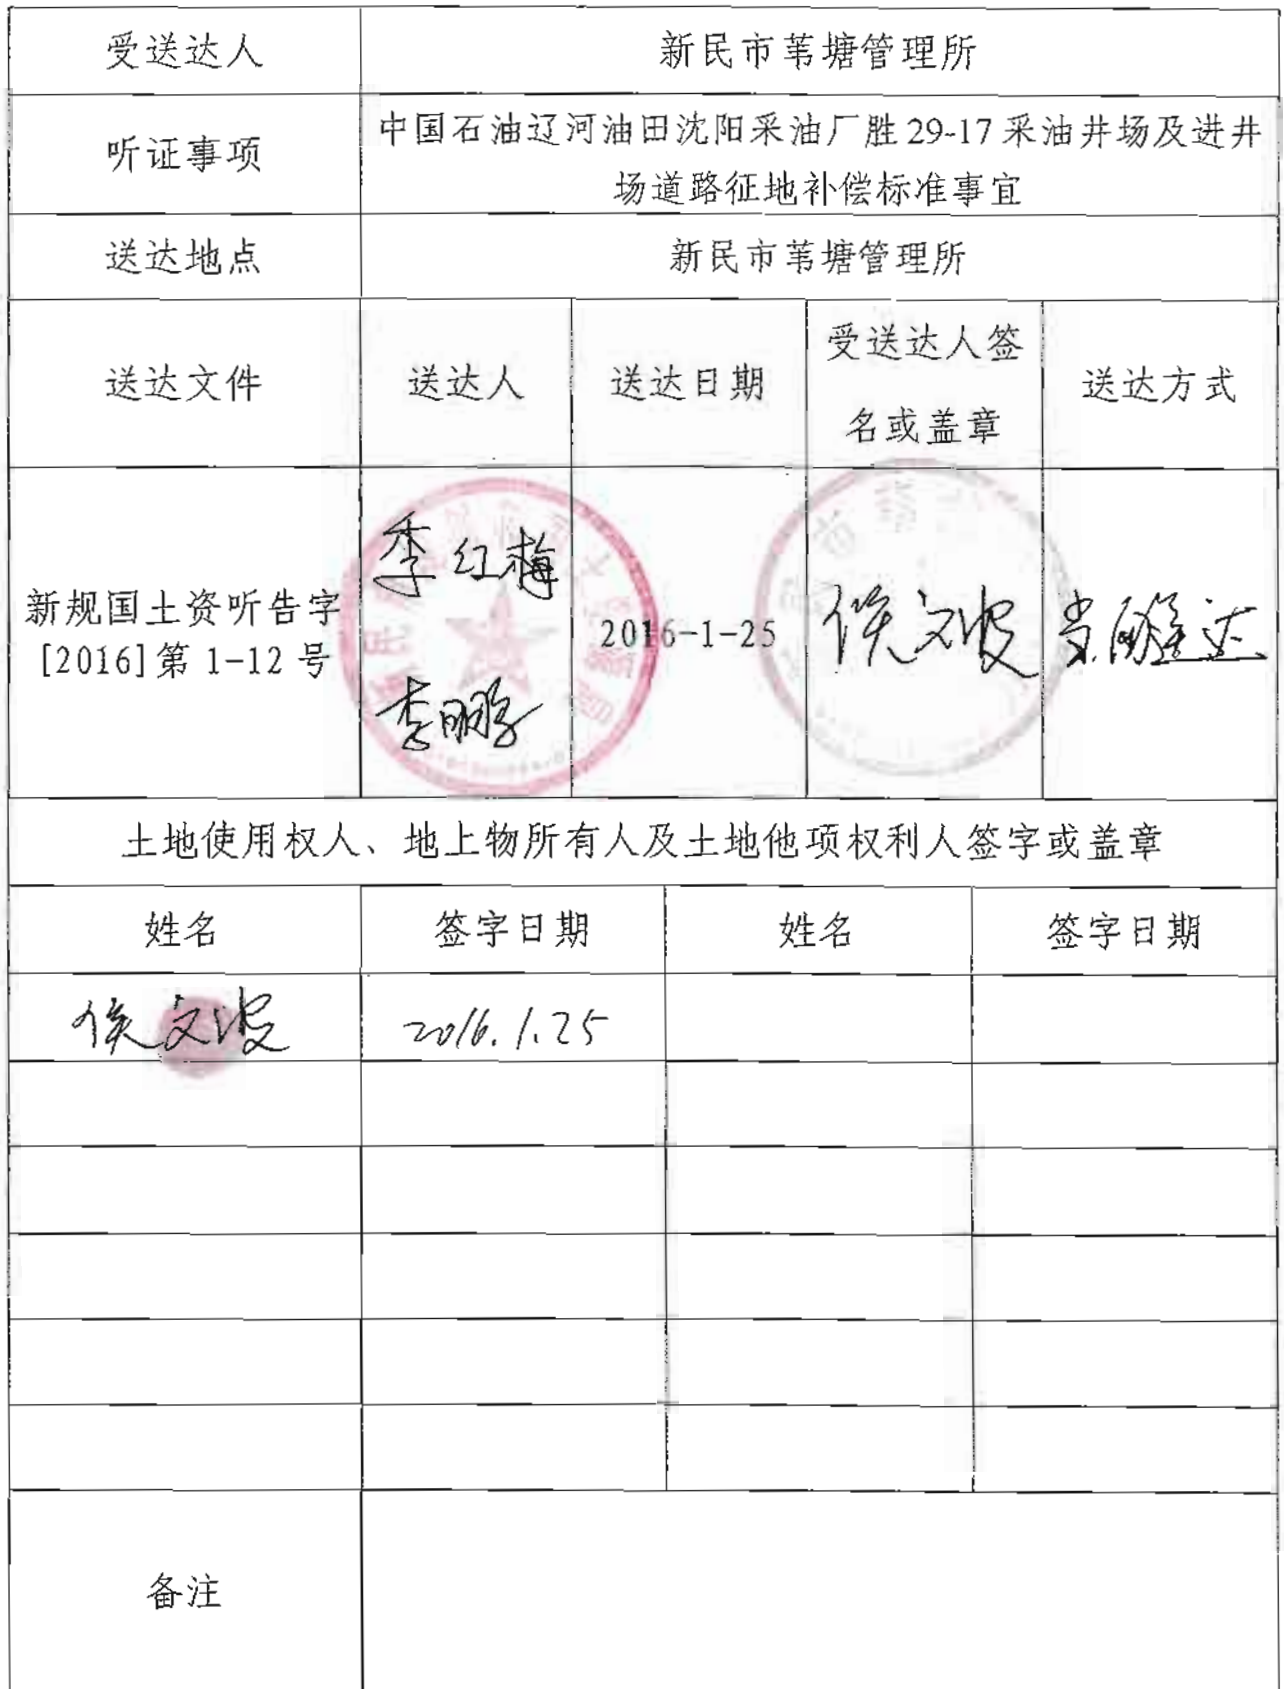 受送达人
新民市苇塘管理所
听证事项
中国石油辽河油田沈阳采油厂胜 29-17 采油井场及进井
场道路征地补偿标准事宜
送达地点
新民市苇塘管理所
送达文件
送达人
送达日期
受送达人签
名或盖章
送达方式
新规国土资听告字
[2016]第 1-12 号
季红梅
李鹏
2016-1-25
侯文波
送达
土地使用权人、地上物所有人及土地他项权利人签字或盖章
姓名
签字日期
姓名
签字日期
侯文波
2016.1.25
备注